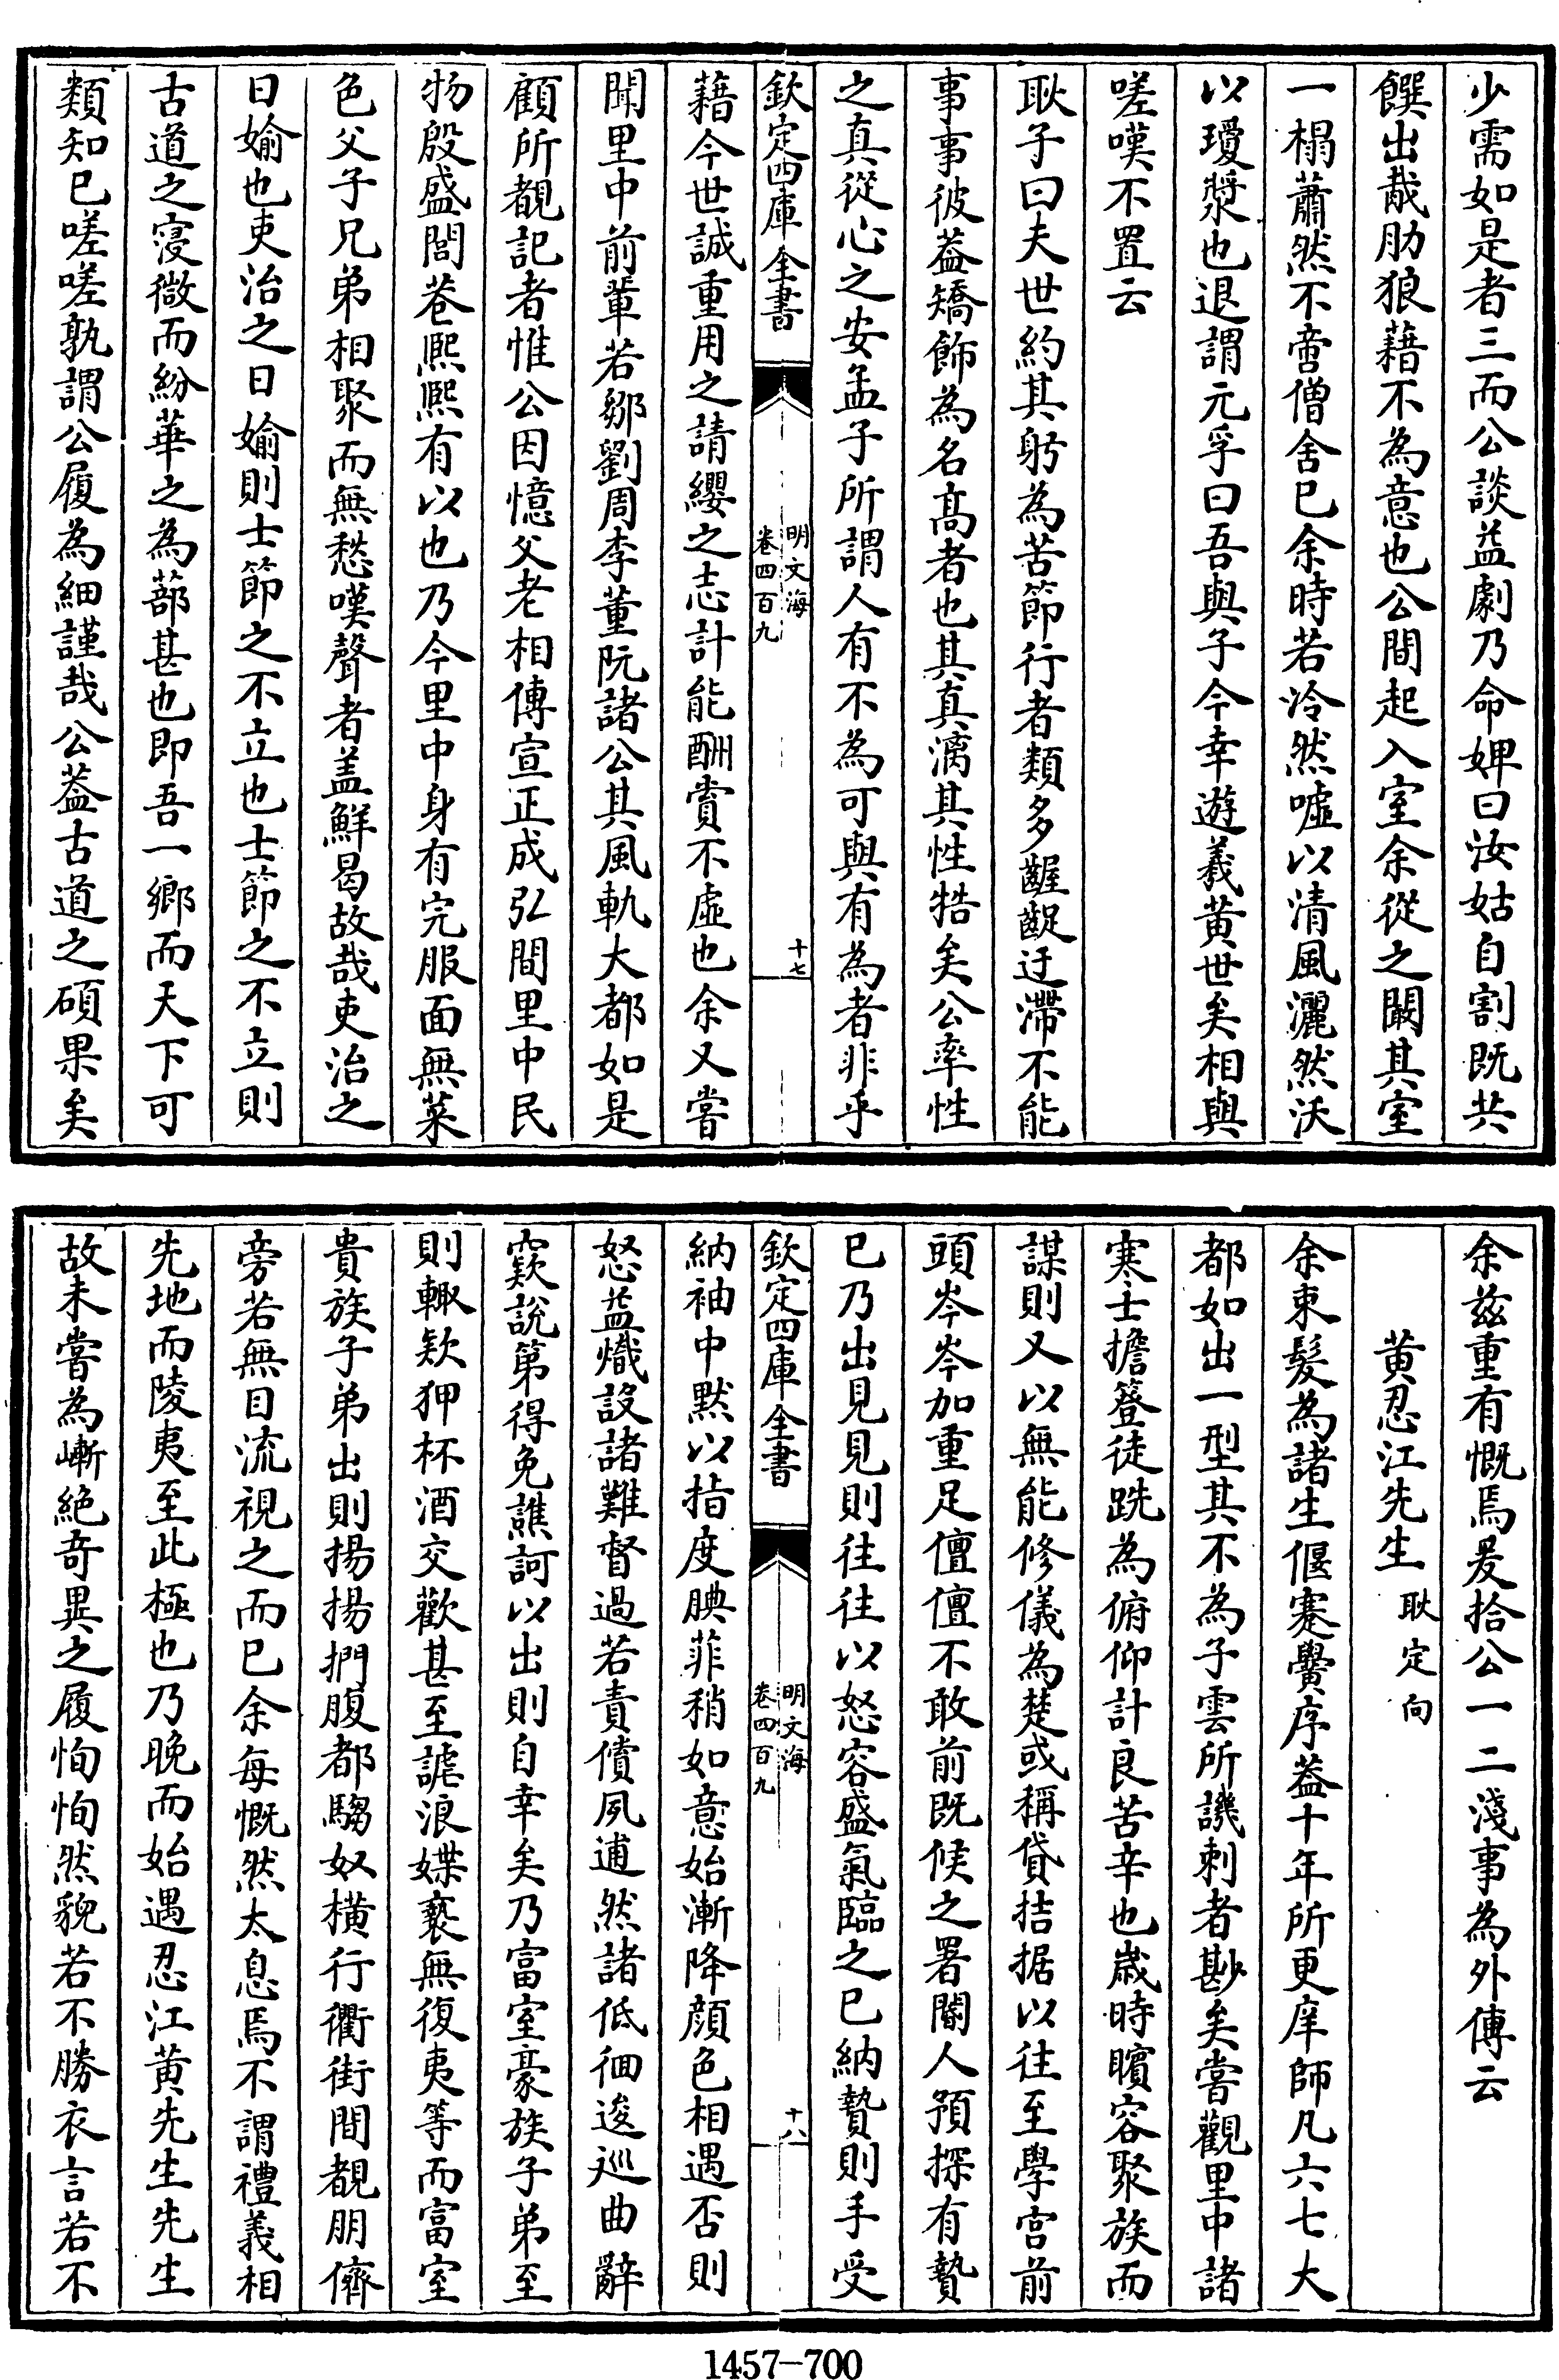 少需如是者三而公談益劇乃命婢曰汝姑自割既共
饌出胾肋狼藉不為意也公間起入室余從之闞其室
一榻蕭然不啻僧舍已余時若泠然噓以清風灑然沃
以瓊漿也退謂元孚曰吾與子今幸遊羲黄世矣相與
嗟嘆不置云
耿子曰夫世約其躬為苦節行者類多齷齪迂滯不能
事事彼葢矯飾為名髙者也其真漓其性牿矣公率性
之真從心之安孟子所謂人有不為可與有為者非乎
欽定四庫全書
明文海
卷四百九
十七
藉今世誠重用之請纓之志計能酬賞不虛也余又嘗
聞里中前輩若鄒劉周李董阮諸公其風軌大都如是
顧所覩記者惟公因憶父老相傳宣正成弘間里中民
物殷盛閭巷熈熈有以也乃今里中身有完服面無菜
色父子兄弟相聚而無愁嘆聲者盖鮮曷故哉吏治之
日媮也吏治之日媮則士節之不立也士節之不立則
古道之寖微而紛華之為蔀甚也即吾一鄉而天下可
類知已嗟嗟孰謂公履為細謹哉公葢古道之碩果矣
余兹重有慨焉爰拾公一二淺事為外傳云
黄忍江先生 耿定向
余束髮為諸生偃蹇黌序葢十年所更庠師凡六七大
都如出一型其不為子雲所譏刺者尠矣嘗觀里中諸
寒士擔簦徒跣為俯仰計良苦辛也歳時賓客聚族而
謀則又以無能修儀為楚或稱貸拮据以往至學宫前
頭岑岑加重足儃儃不敢前既候之署閽人預探有贄
已乃出見見則往往以怒容盛氣臨之已納贄則手受
欽定四庫全書
明文海
卷四百九
十八
納袖中默以指度腆菲稍如意始漸降顔色相遇否則
怒益熾設諸難督過若責償夙逋然諸低徊逡巡曲辭
窾說第得免譙訶以出則自幸矣乃富室豪族子弟至
則輙欵狎杯酒交歡甚至謔浪媟褻無復夷等而富室
貴族子弟出則揚揚捫腹都騶奴横行衢街間覩朋儕
旁若無目流視之而已余每慨然太息焉不謂禮義相
先地而陵夷至此極也乃晚而始遇忍江黄先生先生
故未嘗為嶄絶竒異之履恂恂然貌若不勝衣言若不
1457-700